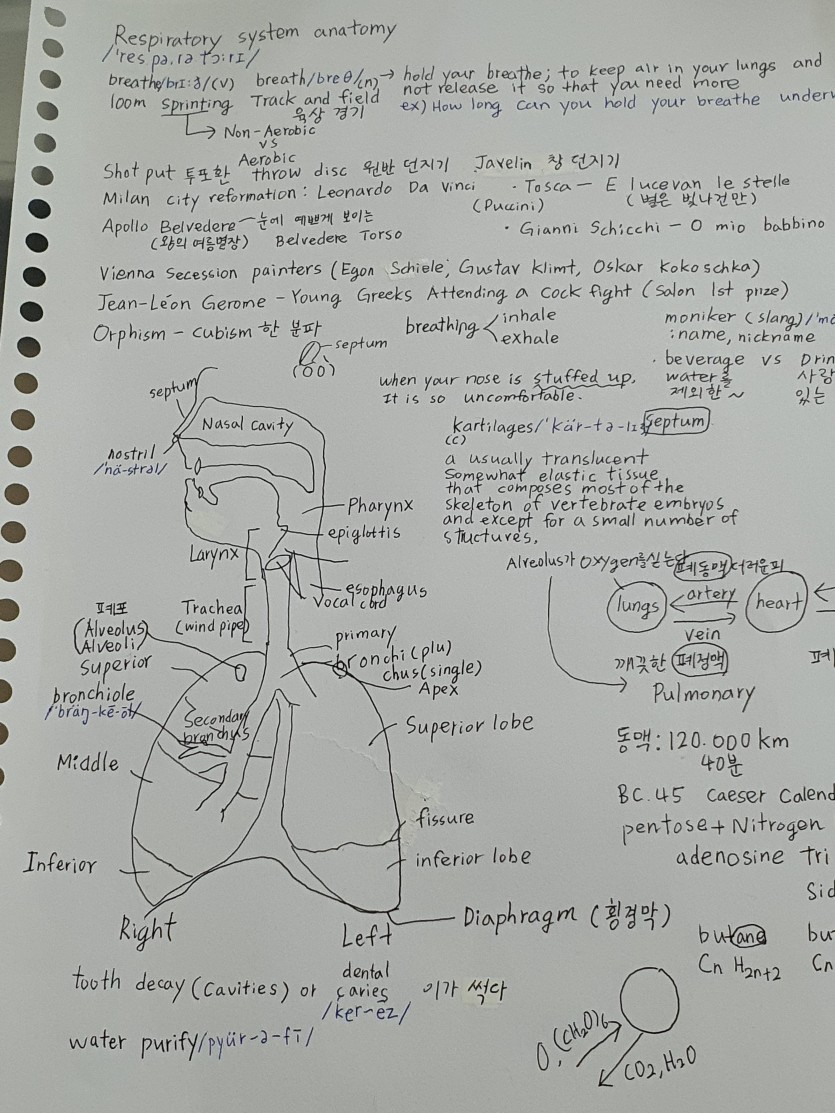 Respiratory system anatomy
/'res pə.rə tɔ:rɪ/
breathe/brɪ:ð/(v) breath/breθ/(n) → hold your breathe; to keep air in your lungs and
not release it so that you need more
100m sprinting Track and field ex) How long can you hold your breathe underw
육상 경기
→ Non-Aerobic
vs
Aerobic
Shot put 투포환 throw disc 원반 던지기 Javelin 창 던지기
Milan city reformation: Leonardo Da Vinci · Tosca — E lucevan le stelle
(Puccini) (별은 빛나건만)
Apollo Belvedere - 눈에 예쁘게 보이는
(왕의 여름별장) Belvedere Torso · Gianni Schicchi — O mio babbino
Vienna secession painters (Egon Schiele, Gustav Klimt, Oskar Kokoschka)
Jean-Léon Gerome - Young Greeks Attending a cock fight (Salon 1st prize)
Orphism - cubism 한 분파
breathing < inhale
exhale
moniker (slang)
: name, nickname
septum
· beverage vs Drin
water를 사랑
제외한~ 있는
when your nose is stuffed up,
It is so uncomfortable.
septum
Nasal cavity
nostril
/nä-strəl/
kartilages/'kär-tə-lɪ septum
(c)
a usually translucent
somewhat elastic tissue
that composes most of the
skeleton of vertebrate embryos
and except for a small number of
stuctures,
Pharynx
epiglottis
Larynx
esophagus
vocal cord
Alveolus가 oxygen를 싣는다
폐동맥 더러운피
lungs artery heart
vein
깨끗한 폐정맥
폐
Pulmonary
폐포
(Alveolus
Alveoli)
Trachea
(wind pipe)
primary
bronchi (plu)
chus (single)
Apex
Superior
bronchiole
/'bräŋ-kē-ōl/
Secondary
bronchus
Superior lobe
Middle
fissure
Inferior
inferior lobe
Right
Left
Diaphragm (횡경막)
동맥: 120.000 km
40분
BC.45 caeser Calend
pentose + Nitrogen
adenosine tri
Sid
butane bu
Cn H2n+2 Cn
tooth decay (cavities) or dental
caries 이가 썩다
/ker-ēz/
water purify/pyür-ə-fī/
O, (CH2O)6
CO2, H2O